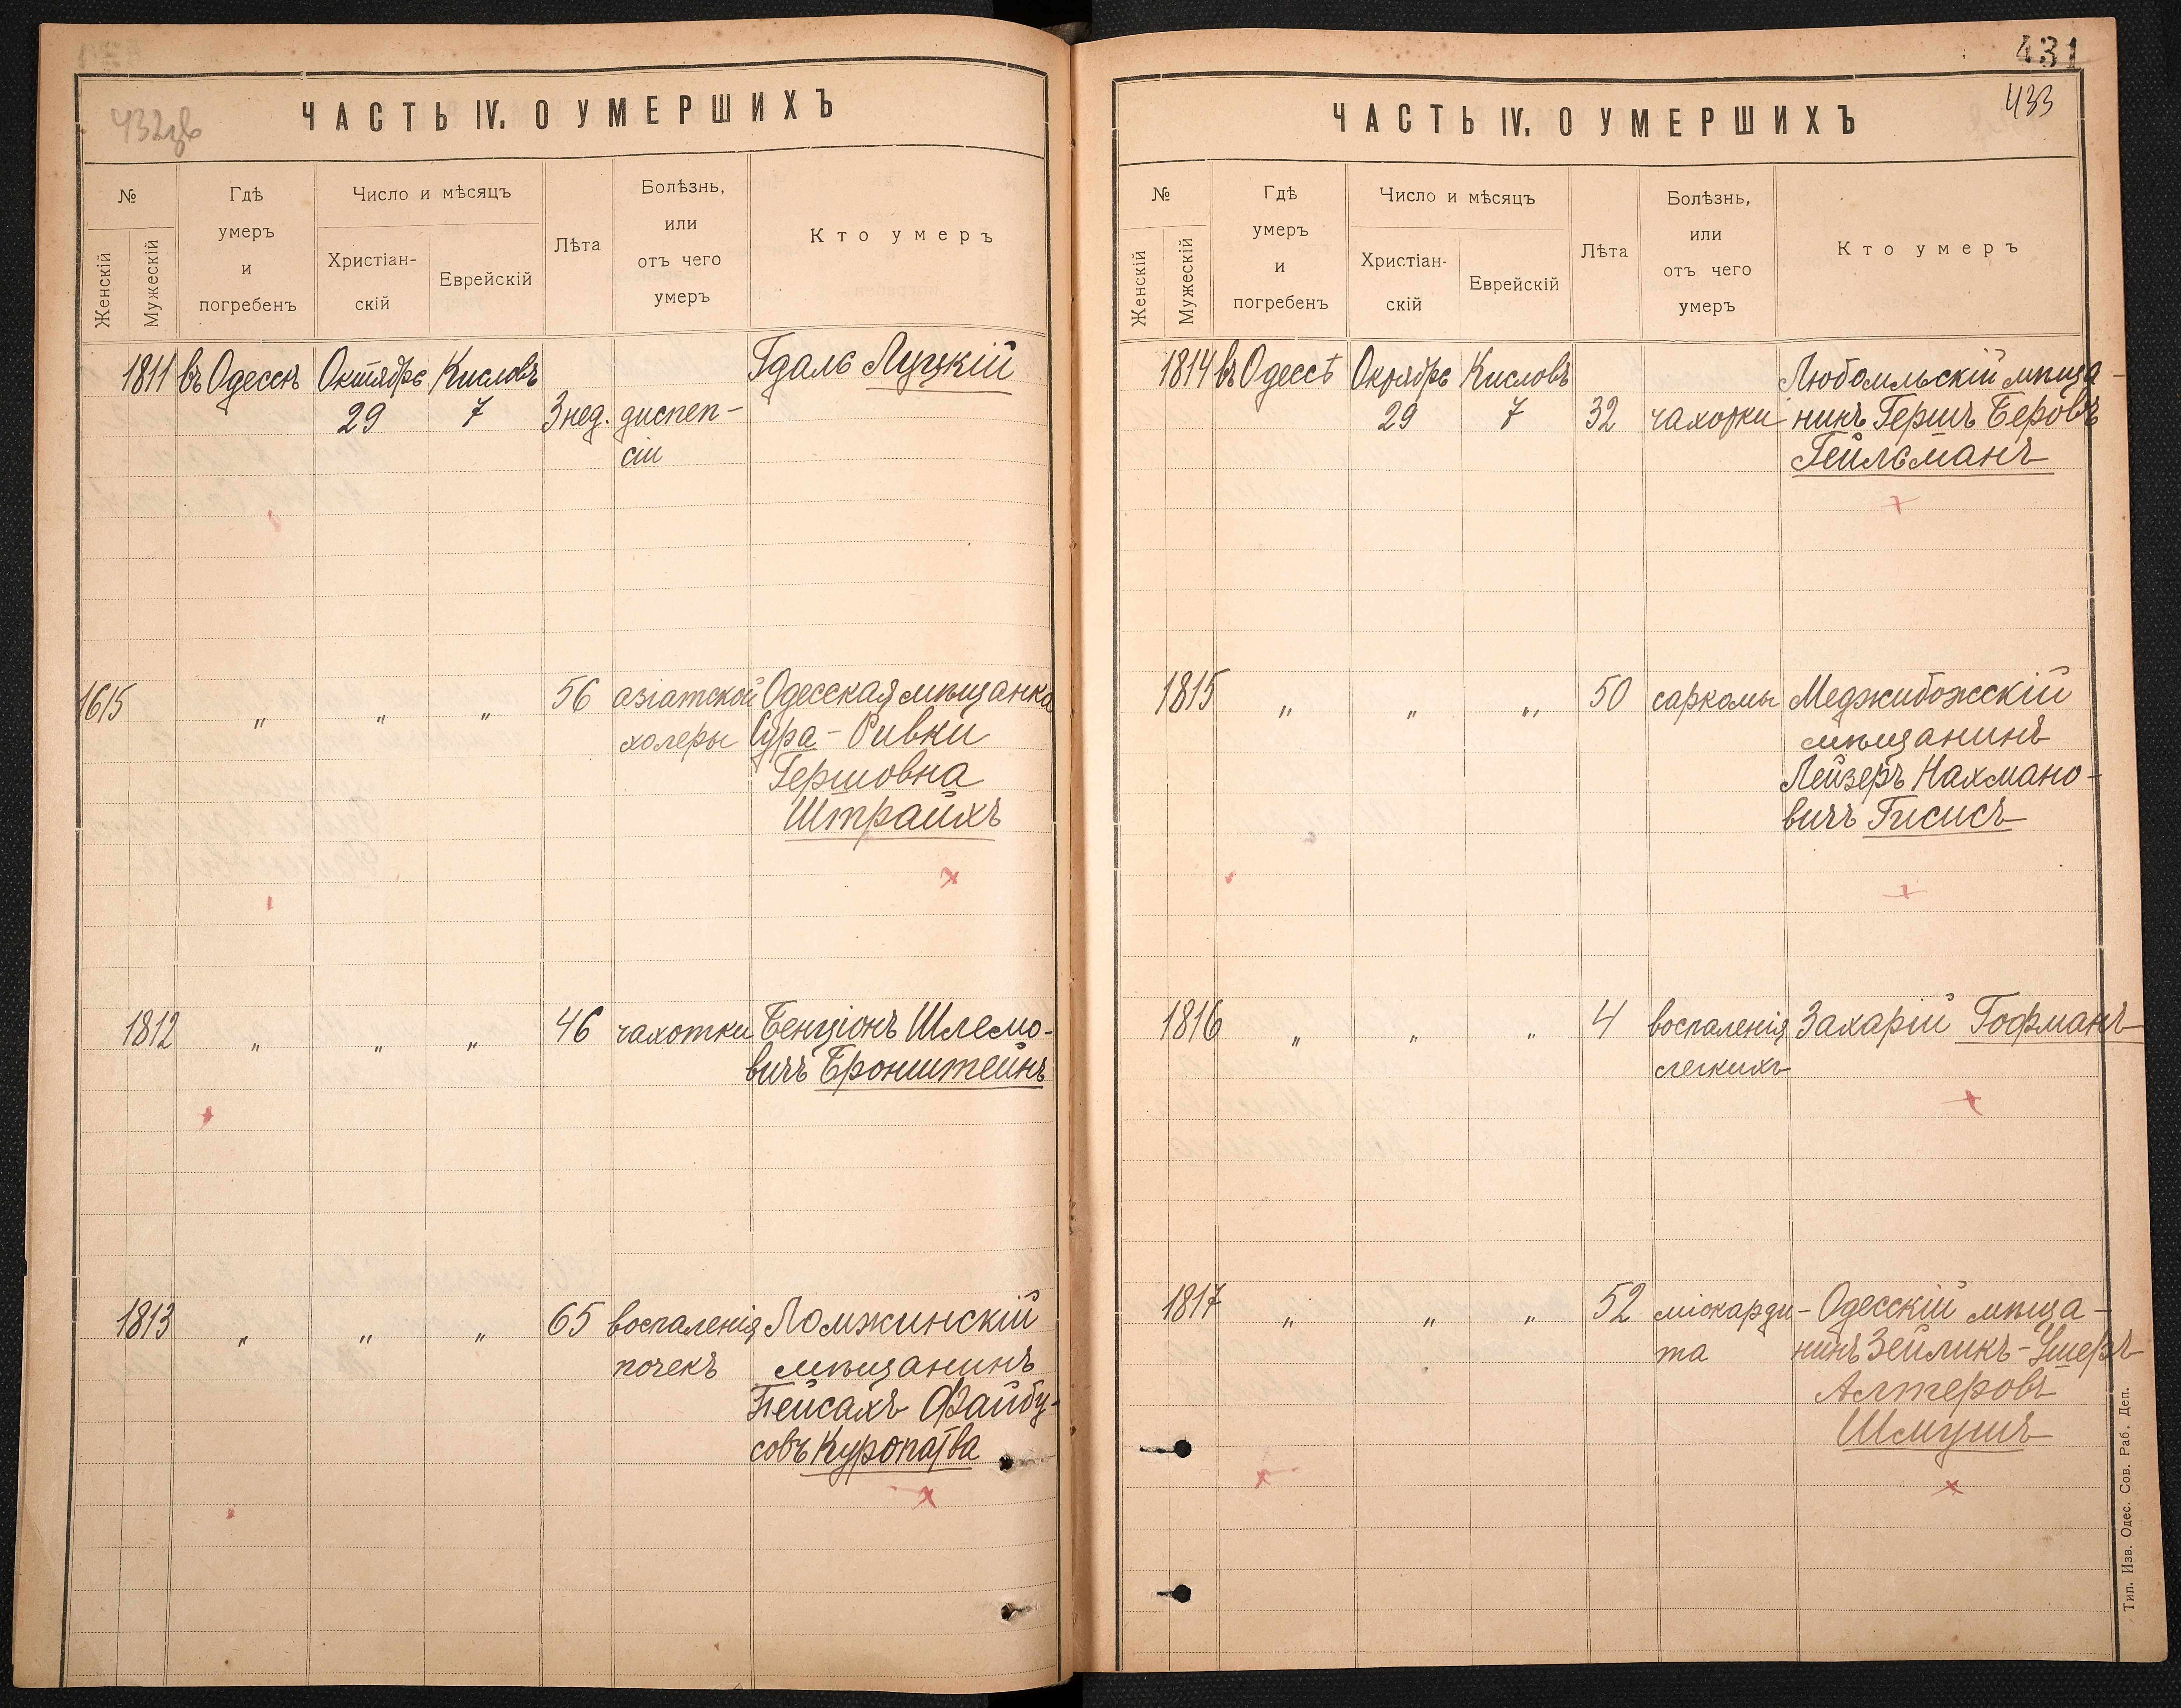 432об
ЧАСТЬ IV. О УМЕРШИХЪ
№
Женскій
Мужескій
Гдѣ
умеръ
и
погребенъ
Число и мѣсяцъ
Христіан-
скій
Еврейскій
Лѣта
Болѣзнь,
или
отъ чего
умеръ
Кто умеръ
1811 въ Одессѣ Октябрь Кисловъ Гдаль Луцкій
29 7 3 нед. диспеп-
сіи
1615 " " " 56 азіатской Одесская мѣщанка
холеры Сура-Ривки
Гершовна
Штрайхъ
1812 " " " 46 чахотки Бенціонъ Шлемо-
вичъ Бронштейнъ
1813 " " " 65 воспаленія Ломжинскій
почекъ мѣщанинъ
Пейсахъ Файбу-
совъ Куропатва
431
433
ЧАСТЬ IV. О УМЕРШИХЪ
№
Женскій
Мужескій
Гдѣ
умеръ
и
погребенъ
Число и мѣсяцъ
Христіан-
скій
Еврейскій
Лѣта
Болѣзнь,
или
отъ чего
умеръ
Кто умеръ
1814 въ Одессѣ Октябрь Кисловъ Любомльскій мѣща-
29 7 32 чахотки нинъ Гершъ Беровъ
Гейльманъ
1815 " " " 50 саркомы Меджибожскій
мѣщанинъ
Лейзеръ Нахмано-
вичъ Гисисъ
1816 " " " 4 воспаленія Захарій Гофманъ
легкихъ
1817 " " " 52 міокарди- Одесскій мѣща-
та нинъ Зейликъ-Ушеръ
Алтеровъ
Шмушъ
Тип. Изв. Одес. Сов. Раб. Деп.